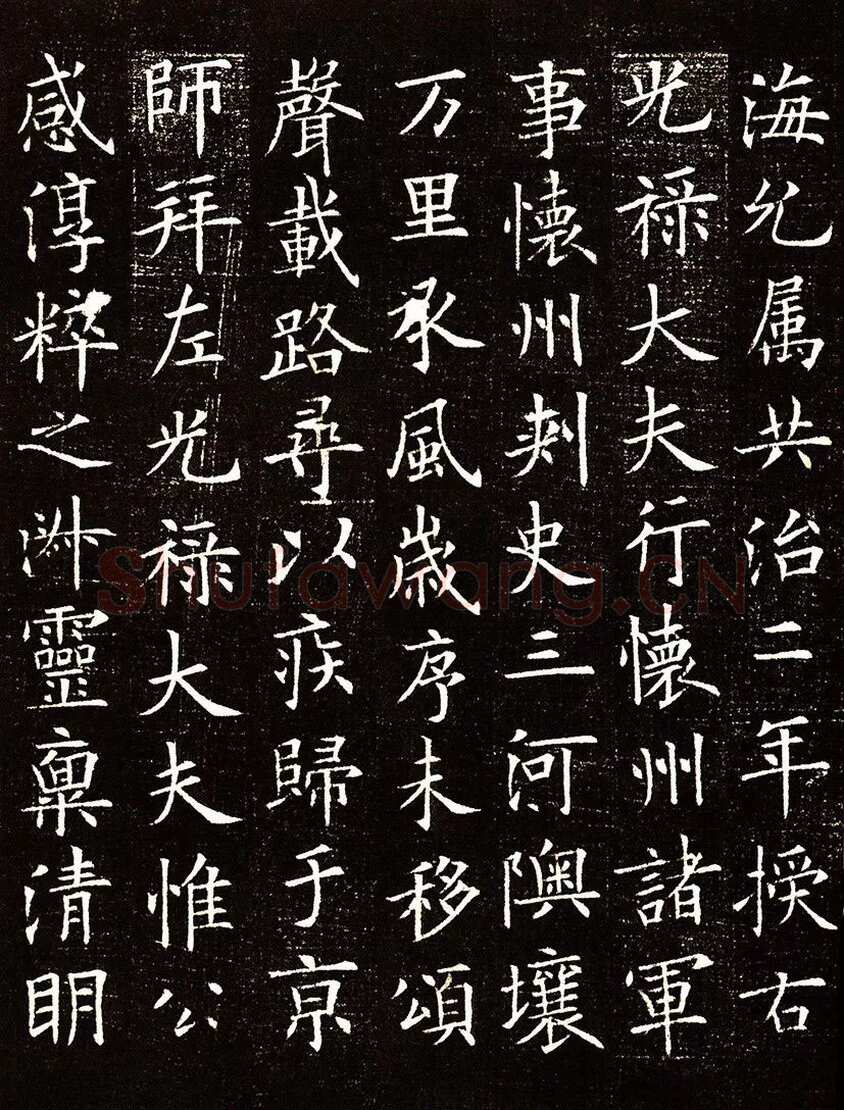 海允属共治二年授右
光禄大夫行懷州諸軍
事懷州刺史三河隩壤
万里承風歲序未移頌
聲載路尋以疾歸于京
師拜左光禄大夫惟公
感淳粹之 靈稟清明
Shufawang.CN